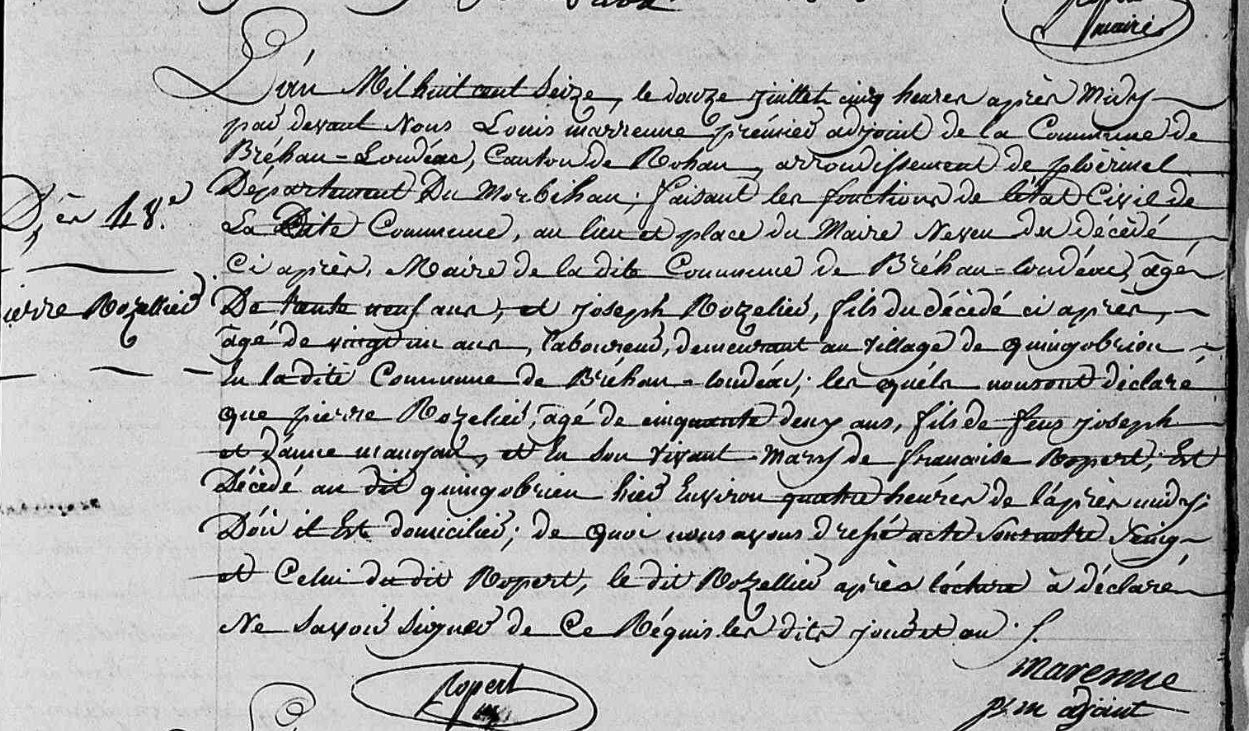 maire
L'an Mil huit cent Seize, le douze juillet cinq heures après Midy
par devant Nous Louis marenne premier adjoint de la Commune de
Bréhan-Loudéac, Canton de Rohan, arrondissement de ploërmel
Département Du Morbihan; faisant les fonctions de l'état Civil de
La Dite Commune, au lieu et place du Maire Neveu du décédé,
Ci après, Maire de la dite Commune de Bréhan-loudéac, âgé
De trente neuf ans, et joseph Rozelier, fils du décédé ci après,
âgé de vingt un ans, laboureur, demeurant au village de quingobrien
En la dite Commune de Bréhan-loudéac; les quels nous ont déclaré
que pierre Rozelier, âgé de cinquante deux ans, fils de feus joseph
et, En Son vivant Mary de francoise Ropert, Est
Décédé au dit quingobrien hier Environ quatre heures de l'après midy;
D'où il Est domicilié; de quoi nous avons dressé acte Sous notre Seing
et Celui du dit Ropert, le dit Rozellier après lecture à déclaré
Ne Savoir Signer de Ce Réquis les dits jour et an.
Dés 48.e
ierre Rozellier
Ropert
marenne
adjoint